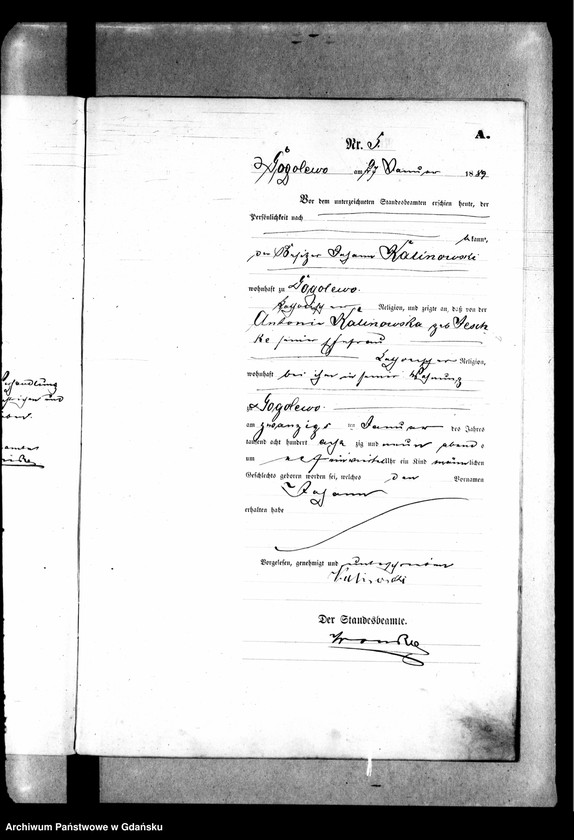 A.
Nr. 5.
Gogolewo am 27 Januar 1889
Vor dem unterzeichneten Standesbeamten erschien heute, der
Persönlichkeit nach
bekannt,
der Besitzer Johann Kalinowski
wohnhaft zu Gogolewo
katholischer Religion, und zeigte an, daß von der
Antonie Kalinowska geb Jesch
ke seiner Ehefrau
katholischer Religion,
wohnhaft bei ihm in seiner Wohnung
zu Gogolewo
am zwanzigs ten Januar des Jahres
tausend acht hundert acht zig und neun abends
um Uhr ein Kind männlichen
Geschlechts geboren worden sei, welches den Vornamen
Johann
erhalten habe
Vorgelesen, genehmigt und unterschrieben
Der Standesbeamte.
Archiwum Państwowe w Gdańsku